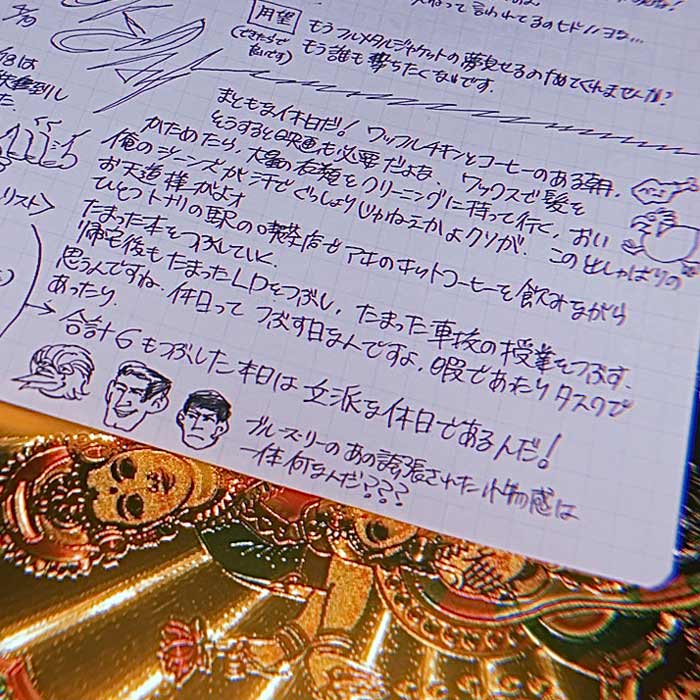 って言われてるのヒドイヨウ...
[用望]
もうフルメタルジャケットの夢見せるのやめてくれませんか?
もう誰も撃ちたくないです.
まともな休日だ! ワッフルチキンとコーヒーのある朝.
そうすると映画も必要だよな. ワックスで髪を
かためたら, 大量の衣類をクリーニングに持って行く, おい
俺のジーンズが汗でぐっしょりじゃねえかよクソが. この出しゃばりの
お天道様がよォ
ひとつトナリの駅の喫茶店でアキのホットコーヒーを飲みながら
たまった本をつぶしていく.
帰宅後もたまったLDをつぶし, たまった車校の授業をつぶす.
思うんですね. 休日って つぶす日なんですよ. 暇であったりタスクで
あったり.
→ 合計6もつぶした本日は 立派な休日であるんだ!
ブルースリーのあの誇張された小物感は
一体何なんだ???
リスト>